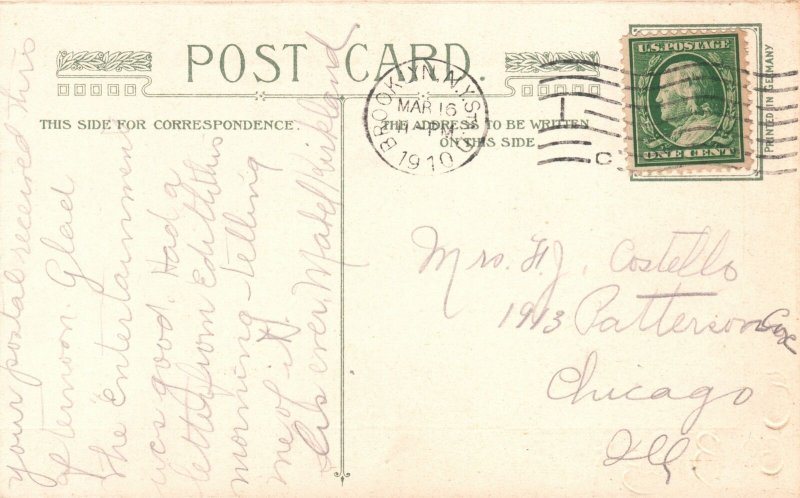 POST CARD.
THIS SIDE FOR CORRESPONDENCE.
THE ADDRESS TO BE WRITTEN
ON THIS SIDE
BROOKLYN, N.Y. STA.
MAR 16
PM
1910
U.S. POSTAGE
ONE CENT
PRINTED IN GERMANY
your postal received this
afternoon. Glad
the entertainment
was good. Had a
letter from Edith this
morning - telling
me of it.
As ever, Mabel Kirkland
Mrs. H. J. Costello
1913 Patterson Ave
Chicago
Ill.